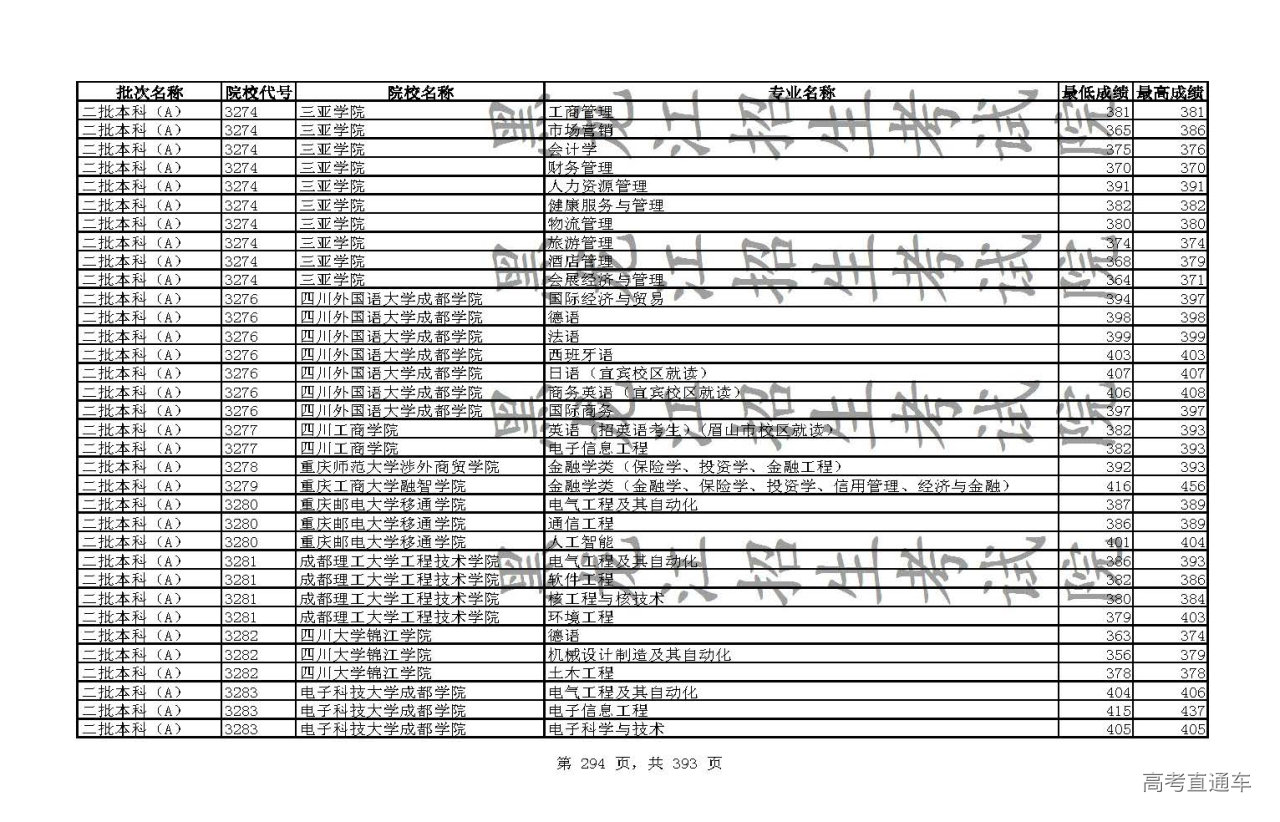 批次名称 院校代号 院校名称 专业名称 最低成绩 最高成绩
二批本科（A） 3274 三亚学院 工商管理 381 381
二批本科（A） 3274 三亚学院 市场营销 365 386
二批本科（A） 3274 三亚学院 会计学 375 376
二批本科（A） 3274 三亚学院 财务管理 370 370
二批本科（A） 3274 三亚学院 人力资源管理 391 391
二批本科（A） 3274 三亚学院 健康服务与管理 382 382
二批本科（A） 3274 三亚学院 物流管理 380 380
二批本科（A） 3274 三亚学院 旅游管理 374 374
二批本科（A） 3274 三亚学院 酒店管理 368 379
二批本科（A） 3274 三亚学院 会展经济与管理 364 371
二批本科（A） 3276 四川外国语大学成都学院 国际经济与贸易 394 397
二批本科（A） 3276 四川外国语大学成都学院 德语 398 398
二批本科（A） 3276 四川外国语大学成都学院 法语 399 399
二批本科（A） 3276 四川外国语大学成都学院 西班牙语 403 403
二批本科（A） 3276 四川外国语大学成都学院 日语（宜宾校区就读） 407 407
二批本科（A） 3276 四川外国语大学成都学院 商务英语（宜宾校区就读） 406 408
二批本科（A） 3276 四川外国语大学成都学院 国际商务 397 397
二批本科（A） 3277 四川工商学院 英语（招英语考生）（眉山市校区就读） 382 393
二批本科（A） 3277 四川工商学院 电子信息工程 382 393
二批本科（A） 3278 重庆师范大学涉外商贸学院 金融学类（保险学、投资学、金融工程） 392 393
二批本科（A） 3279 重庆工商大学融智学院 金融学类（金融学、保险学、投资学、信用管理、经济与金融） 416 456
二批本科（A） 3280 重庆邮电大学移通学院 电气工程及其自动化 387 389
二批本科（A） 3280 重庆邮电大学移通学院 通信工程 386 389
二批本科（A） 3280 重庆邮电大学移通学院 人工智能 401 404
二批本科（A） 3281 成都理工大学工程技术学院 电气工程及其自动化 386 393
二批本科（A） 3281 成都理工大学工程技术学院 软件工程 382 386
二批本科（A） 3281 成都理工大学工程技术学院 核工程与核技术 380 384
二批本科（A） 3281 成都理工大学工程技术学院 环境工程 379 403
二批本科（A） 3282 四川大学锦江学院 德语 363 374
二批本科（A） 3282 四川大学锦江学院 机械设计制造及其自动化 356 379
二批本科（A） 3282 四川大学锦江学院 土木工程 378 378
二批本科（A） 3283 电子科技大学成都学院 电气工程及其自动化 404 406
二批本科（A） 3283 电子科技大学成都学院 电子信息工程 415 437
二批本科（A） 3283 电子科技大学成都学院 电子科学与技术 405 405
黑龙江招生考试院
黑龙江招生考试院
黑龙江招生考试院
黑龙江招生考试院
第 294 页，共 393 页
高考直通车